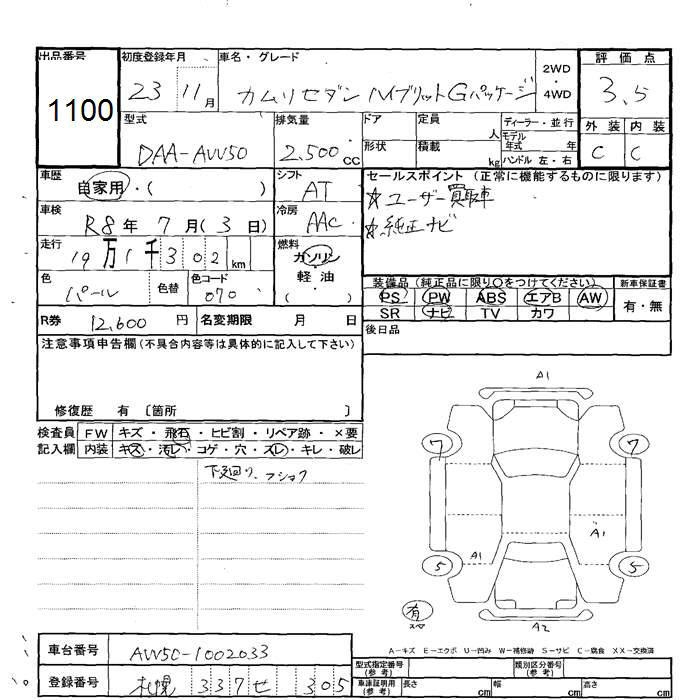 出品番号 初度登録年月 車名・グレード 評価点
1100 23 11月 カムリセダン ハイブリットGパッケージ 2WD・4WD 3.5
外装 内装
C C
型式 排気量 ドア 定員 人 ディーラー・並行
DAA-AVV50 2,500cc 形状 積載 kg モデル年式 年
ハンドル 左・右
車歴 自家用・( ) シフト AT セールスポイント (正常に機能するものに限ります)
☆ユーザー買取車
車検 R8年 7月(3日) 冷房 AAC ☆純正ナビ
走行 19万1千302km 燃料 ガソリン・軽油・( )
色 パール 色替 色コード 070
装備品 (純正品に限り○をつけてください) 新車保証書
PS PW ABS エアB AW 有・無
SR ナビ TV カワ
R券 12,600円 名変期限 月 日 後日品
注意事項申告欄(不具合内容等は具体的に記入して下さい)
修復歴 有 〔箇所 〕
検査員 FW キズ・飛石・ヒビ割・リペア跡・×要
記入欄 内装 キズ・汚レ・コゲ・穴・スレ・キレ・破レ
下廻り.フショク
A1
7 7
A1 A1
5 5
有
スペ
A2
A−キズ E−エクボ U−凹み W−補修跡 S−サビ C−腐食 XX−交換済
車台番号 AVV50-1002033
型式指定番号(参考) 類別区分番号(参考)
登録番号 札幌 337 せ 305
車庫証明用(参考) 長さ cm 幅 cm 高さ cm